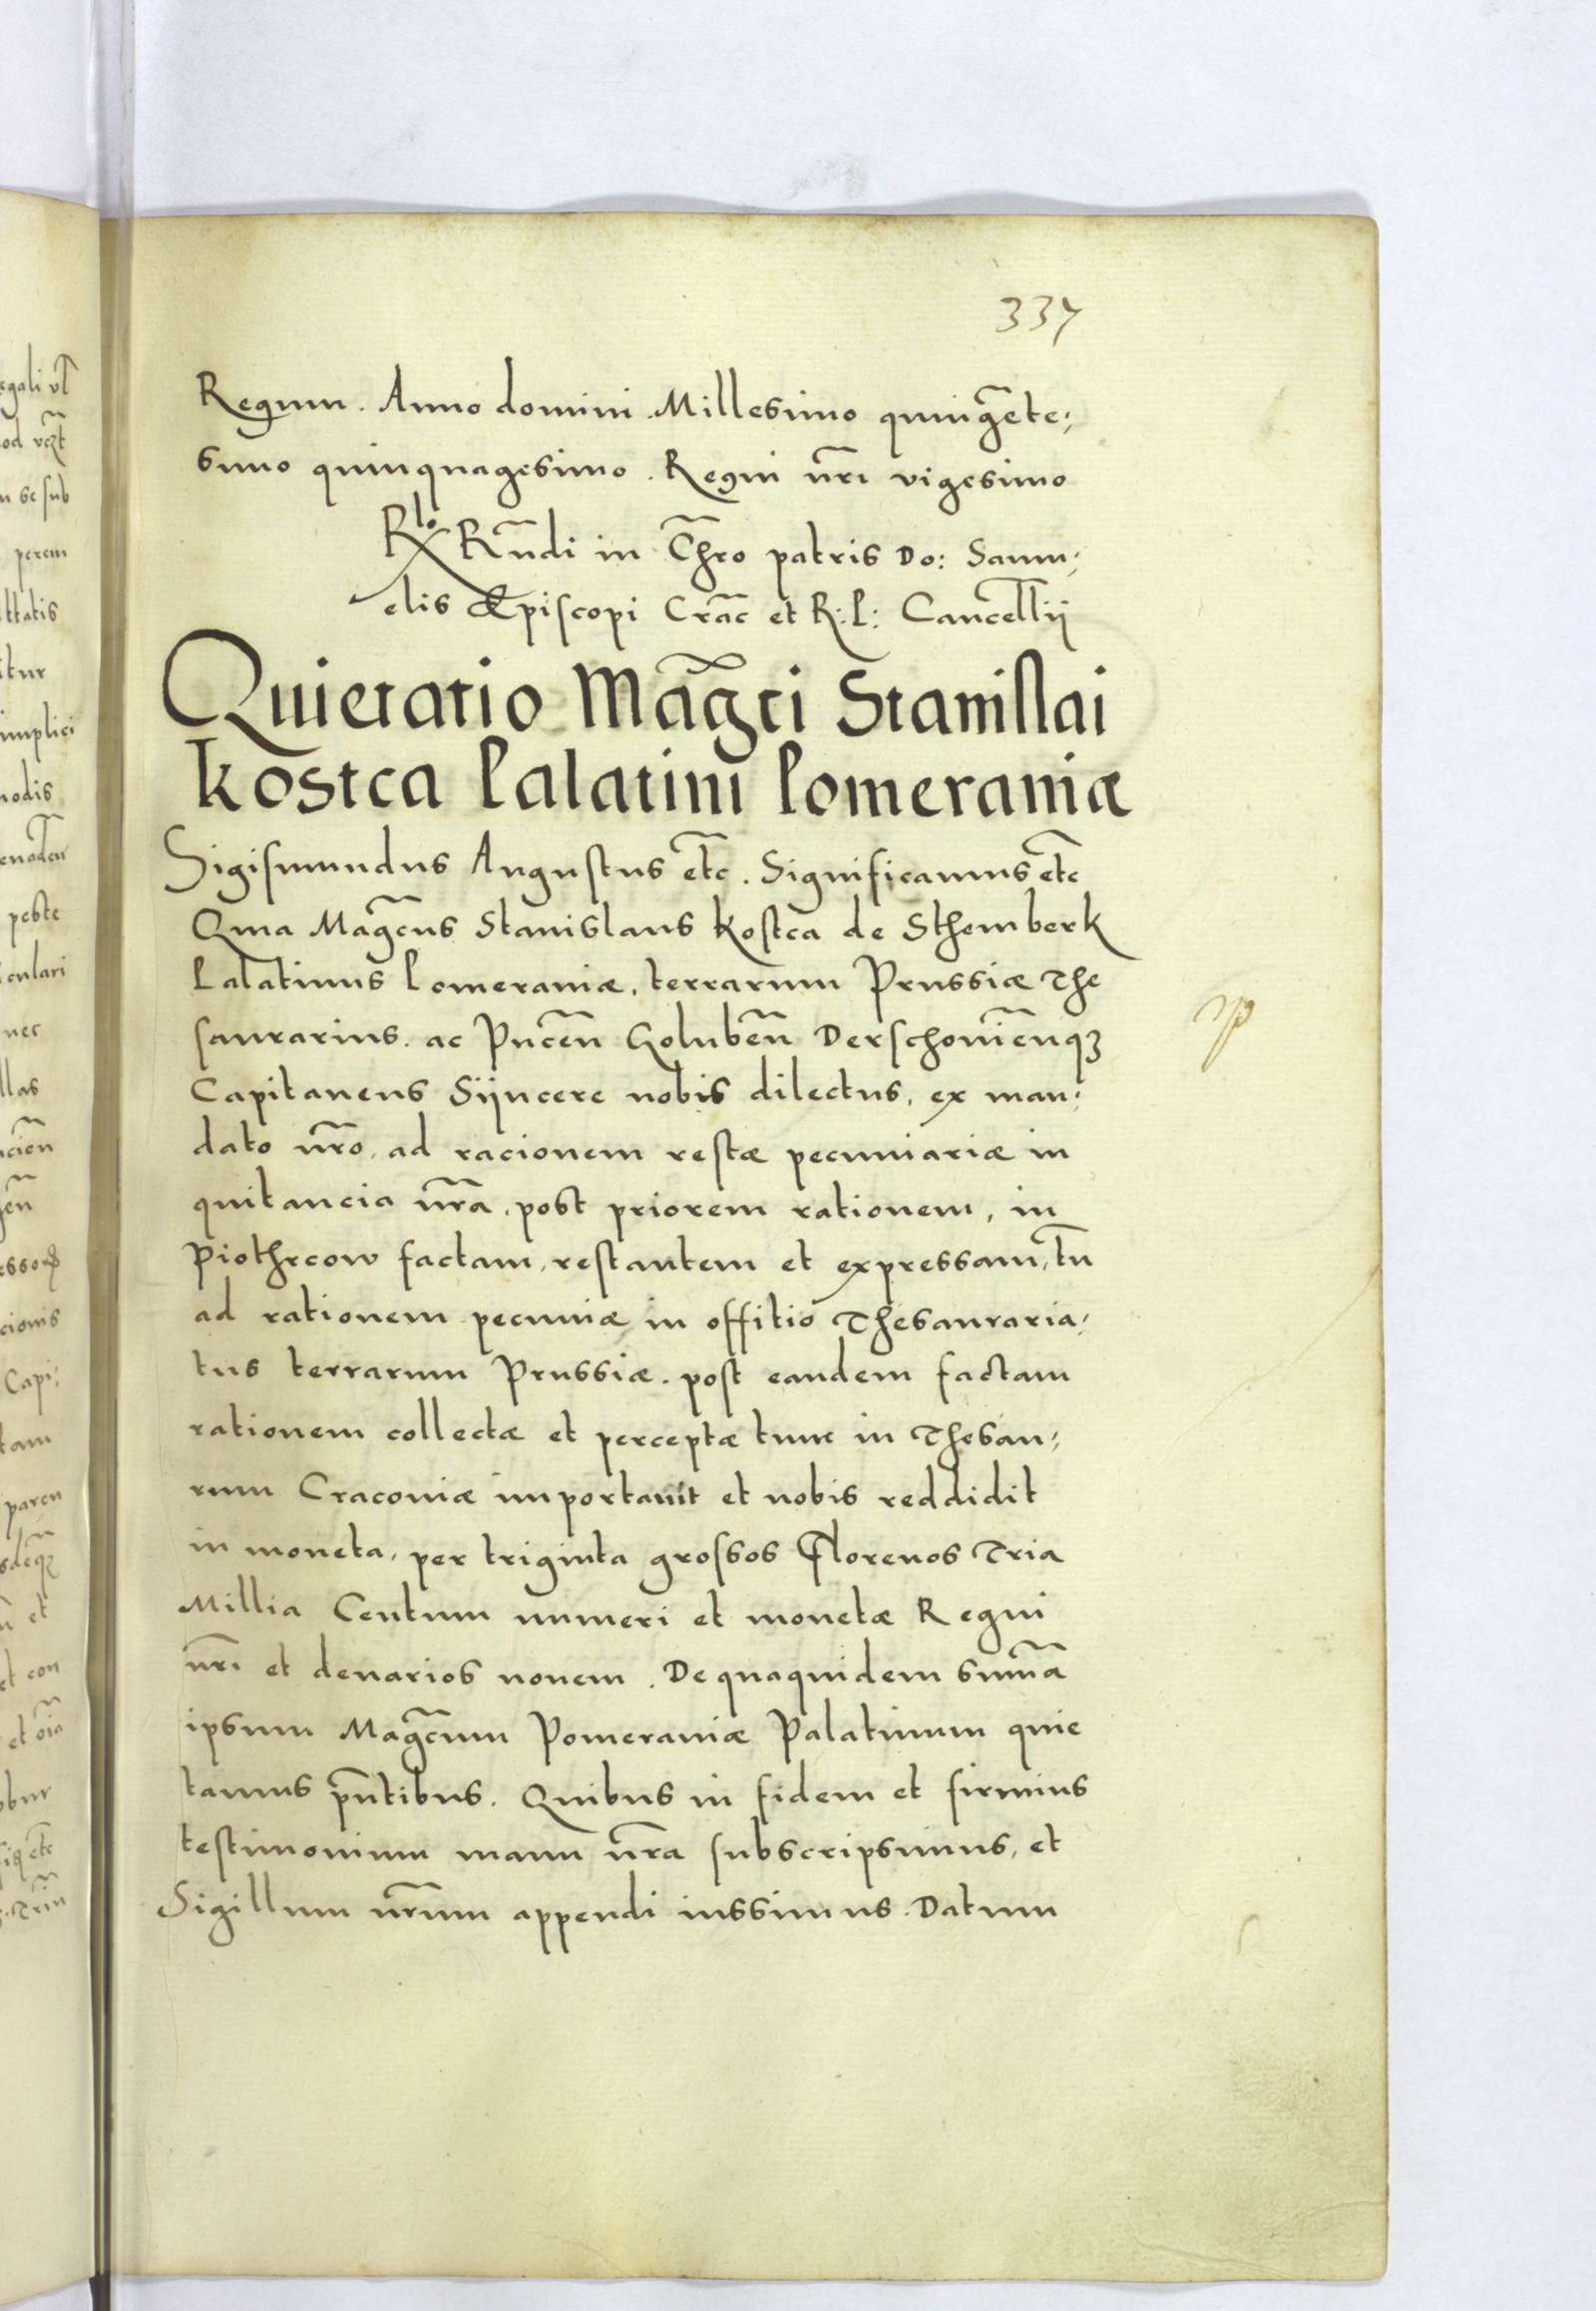 337
Regum. Anno domini Millesimo quingẽte;
simo quinquagesimo. Regni nr̃i vigesimo
Rlo Rn̄di in Chr̃o patris Do: Samu;
elis Episcopi Crac̃ et R: P: Cancellÿ
Quietatio Mag̃ci Stanislai
Kostca Palatini Pomeraniæ
Sigismundus Augustus etc̃. Significamus etc̃
Quia Mag̃cus Stanislaus Kostca de Sthemberk
Palatinus Pomeraniæ, terrarum Prussiæ The
saurarius. ac Pucen̄ Goluben̄ Derschouien̄q3
Capitaneus Sÿncere nobis dilectus, ex man;
dato nr̃o, ad racionem restæ pecuniariæ in
quitancia nr̃a, post priorem rationem, in
Piothrcow factam, restantem et expressam, tũ
ad rationem pecuniæ in offitio Thesauraria;
tus terrarum Prussiæ. post eandem factam
rationem collectæ et perceptæ tunc in Thesau;
rum Cracouiæ importauit et nobis reddidit
in moneta, per triginta grossos Florenos Tria
Millia Centum numeri et monetæ Regni
nr̃i et denarios nouem. De quaquidem sum̃a
ipsum Mag̃cum Pomeraniæ Palatinum quie
tamus pñtibus. Quibus in fidem et firmius
testimonium manu nr̃a subscripsimus, et
Sigillum nr̃um appendi iussimus. Datum